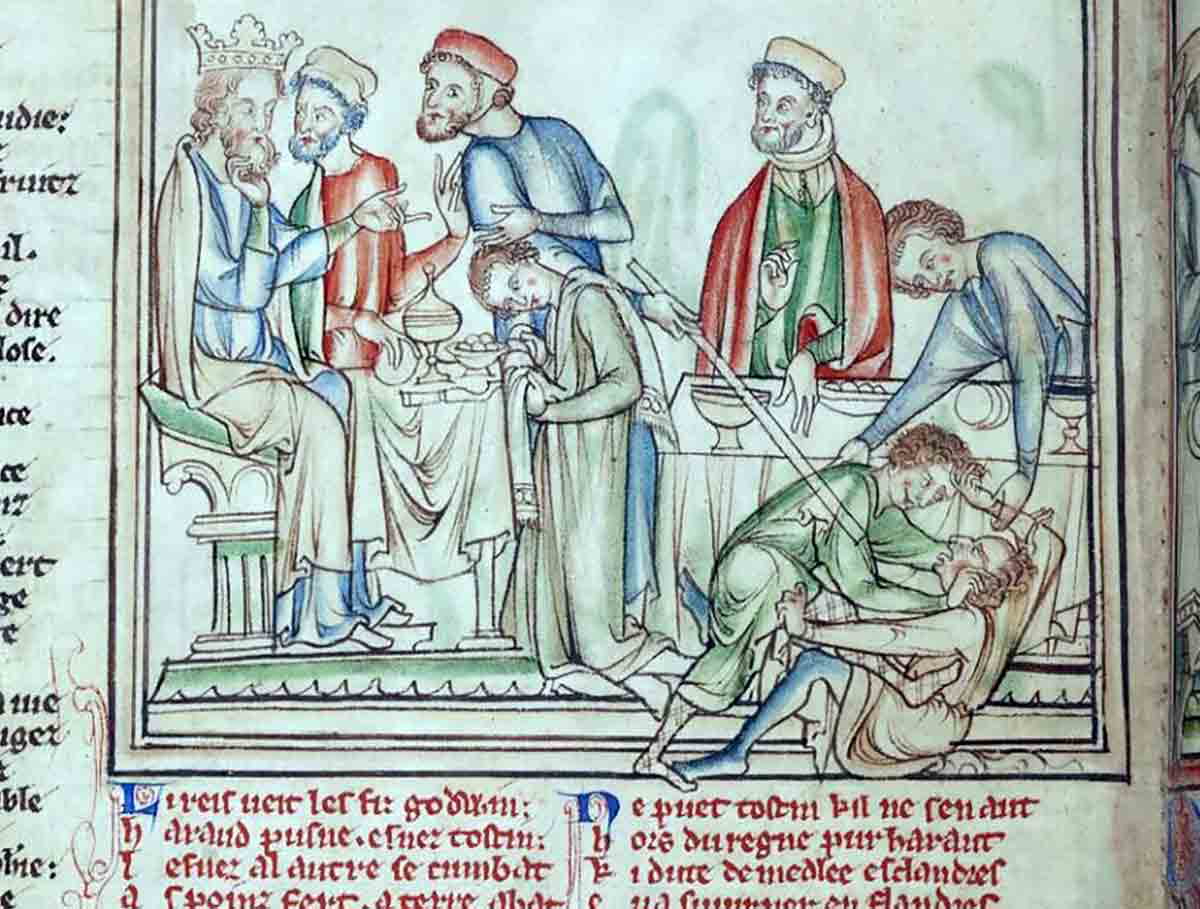 udie:
il.
dire
lose.
nce
ce
ert
ge
me
uger
ble
hie:
Li reis ueit les fiz godwin;
haraud pusne. esner tostin:
l esuer al autre se cumbat
a s poinz fert. a terre abat
Ne puet tostin kil ne sen aut
hors du regne pur haraut
ki dute de medlee esclandres
e ua suiurner en flandres